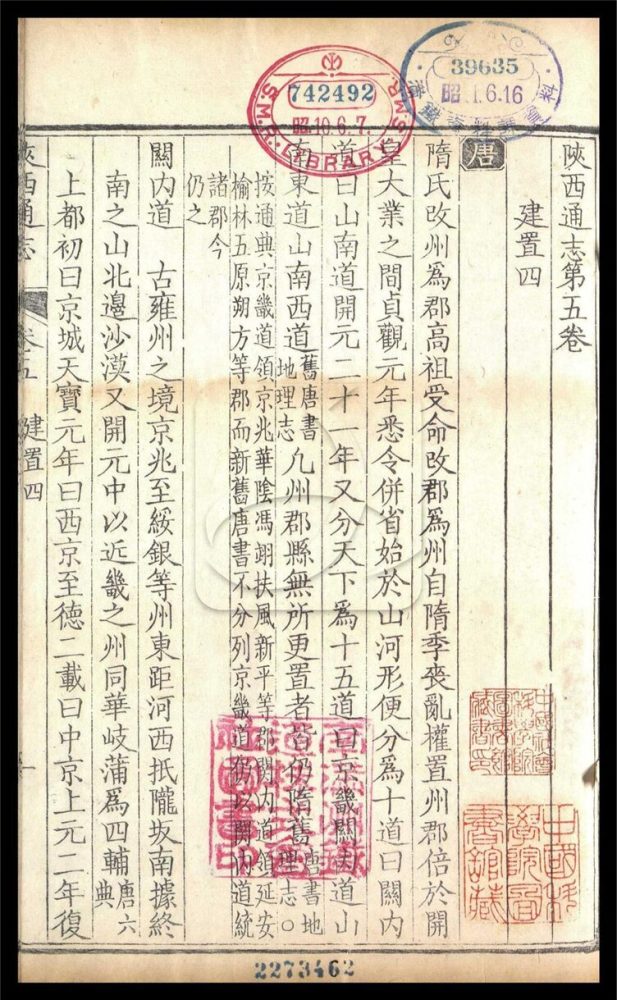 陝西通志第五卷
建置四
唐
隋氏改州爲郡高祖受命改郡爲州自隋季喪亂權置州郡倍於開
皇大業之間貞觀元年悉令併省始於山河形便分爲十道曰關内
道曰山南道開元二十一年又分天下爲十五道曰京畿關内道山
南東道山南西道舊唐書地理志凡州郡縣無所更置者皆仍隋舊唐書地理志○
按通典京畿道領京兆華陰馮翊扶風新平等郡関内道領延安
榆林五原朔方等郡而新舊唐書不分列京畿道仍以關内道統
諸郡今
仍之
關内道 古雍州之境京兆至綏銀等州東距河西抵隴坂南據終
南之山北邊沙漠又開元中以近畿之州同華岐蒲爲四輔唐六典
上都初曰京城天寶元年曰西京至德二載曰中京上元二年復
陝西通志 卷五 建置四
S.M.R. LIBRARY S.M.R.
742492
昭10.6.7.
39635
昭 1.6.16
中國科學院圖書館藏
2273462